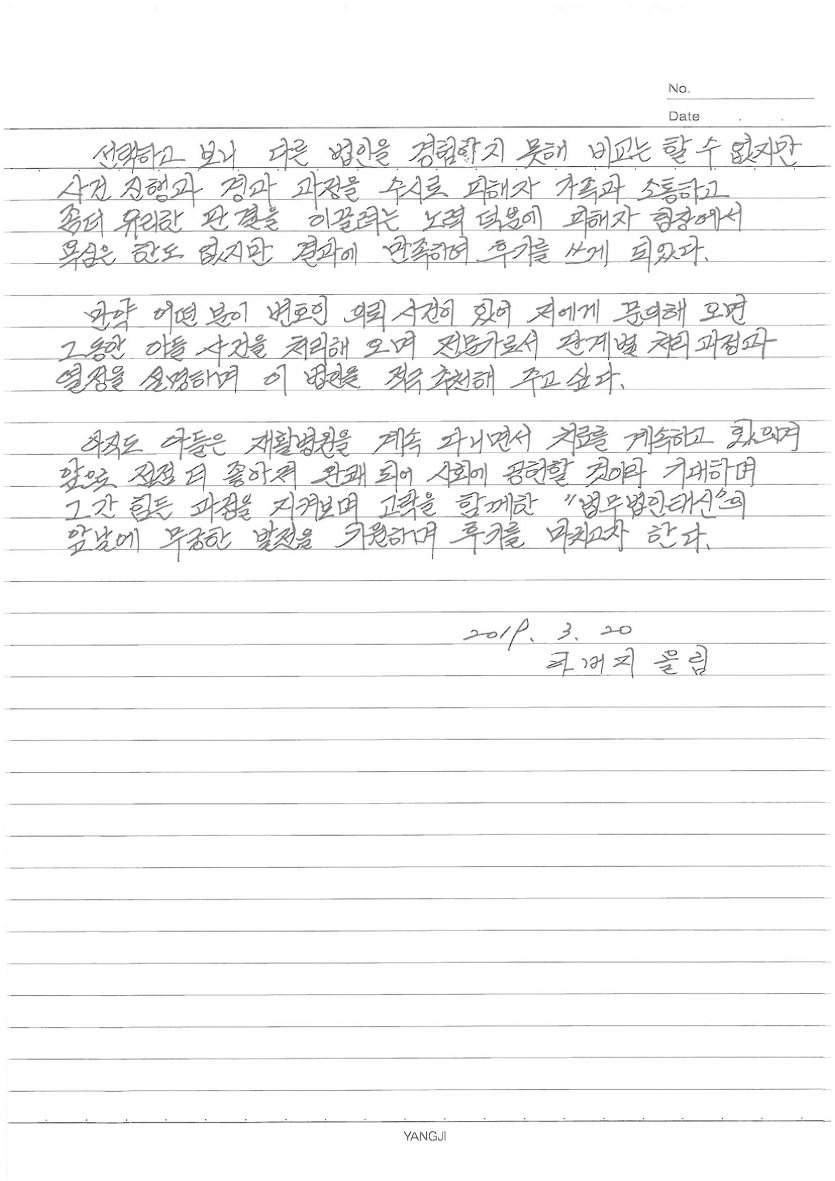 No.
Date . .
선택하고 보니 다른 법인을 경험하지 못해 비교는 할 수 없지만
사건 진행과 경과 과정을 수시로 피해자 가족과 소통하고
좀더 유리한 판결을 이끌려는 노력 덕분에 피해자 입장에서
욕심은 한도 없지만 결과에 만족하며 후기를 쓰게 되었다.
만약 어떤 분이 변호인 의뢰 사건이 있어 저에게 문의해 오면
그동안 아들 사건을 처리해 오며 전문가로서 단계별 처리과정과
열정을 설명하며 이 법인을 적극 추천해 주고 싶다.
아직도 아들은 재활병원을 계속 다니면서 치료를 계속하고 있으며
앞으로 점점 더 좋아져 완쾌 되어 사회에 공헌할 것이라 기대하며
그간 힘든 과정을 지켜보며 고락을 함께한 "법무법인태신"의
앞날에 무궁한 발전을 기원하며 후기를 마치고자 한다.
2019. 3. 20
아버지 올림
YANGJI